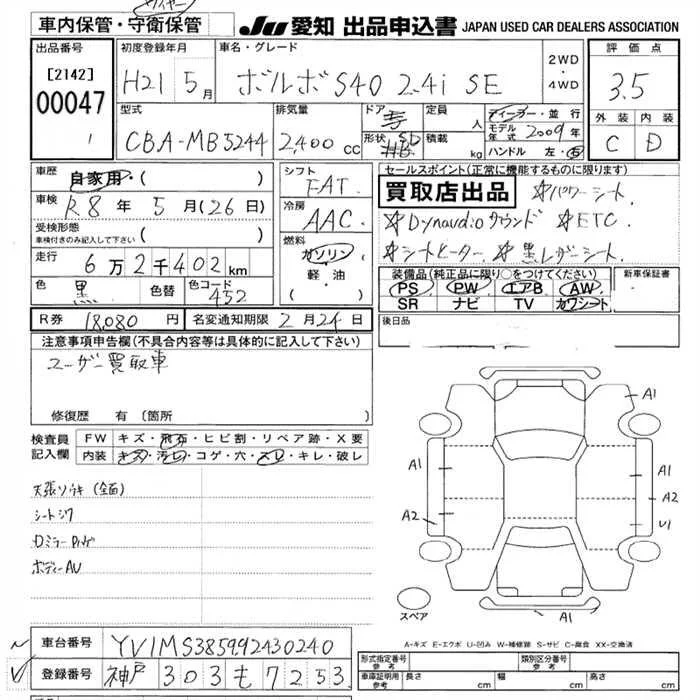 車内保管・守衛保管
JU 愛知 出品申込書 JAPAN USED CAR DEALERS ASSOCIATION
出品番号
[2142]
00047
1
初度登録年月
H21 5月
車名・グレード
ボルボ S40 2.4i SE
2WD
・
4WD
評価点
3.5
外装 内装
C D
型式
CBA-MB5244
排気量
2,400 cc
ドア
形状
定員 人
積載 kg
ディーラー・並行
モデル年式 2009年
ハンドル 左・右
車歴 自家用・( )
車検 R8年 5月(26日)
受検形態
車検付きのみ記入して下さい ( )
走行 6万2千402km
色 黒 色替 色コード 452
シフト
FAT
冷房
AAC
燃料
ガソリン
軽・油
( )
セールスポイント(正常に機能するものに限ります)
買取店出品 ☆パワーシート
☆Dynaudioサウンド ☆ETC
☆シートヒーター ☆黒レザーシート
装備品(純正品に限り○をつけてください)
PS PW エアB AW
SR ナビ TV カワシート
新車保証書
後日品
R券 18,080円 名変通知期限 2月24日
注意事項申告欄(不具合内容等は具体的に記入して下さい)
ユーザー買取車
修復歴 有(箇所
検査員記入欄
FW キズ・飛石・ヒビ割・リペア跡・X要
内装 キズ・汚レ・コゲ・穴・スレ・キレ・破レ
シートシワ
ボディーAU
A1
A1
A1
A2
A2
U1
A1
スペア
A-キズ E-エクボ U-凹み W-補修跡 S-サビ C-腐食 XX-交換済
車台番号 YV1MS385992430240
登録番号 神戸 303 も 7253
形式指定番号
参考
類別区分番号
参考
車庫証明用
参考
長さ cm 幅 cm 高さ cm